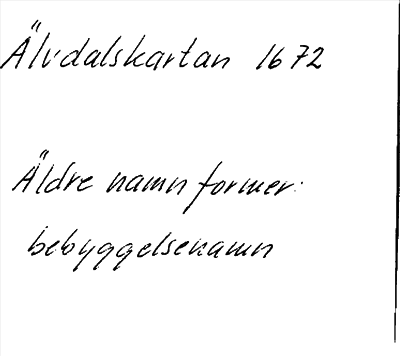 Älvdalskartan 1672
Äldre namnformer:
bebyggelsenamn